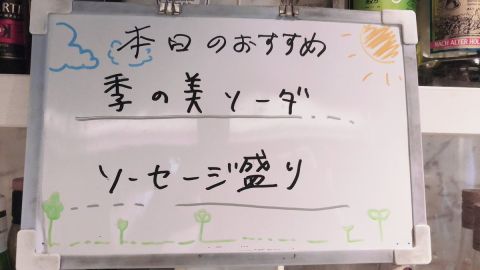 本日のおすすめ
季の美ソーダ
ソーセージ盛り
NACH ALTER